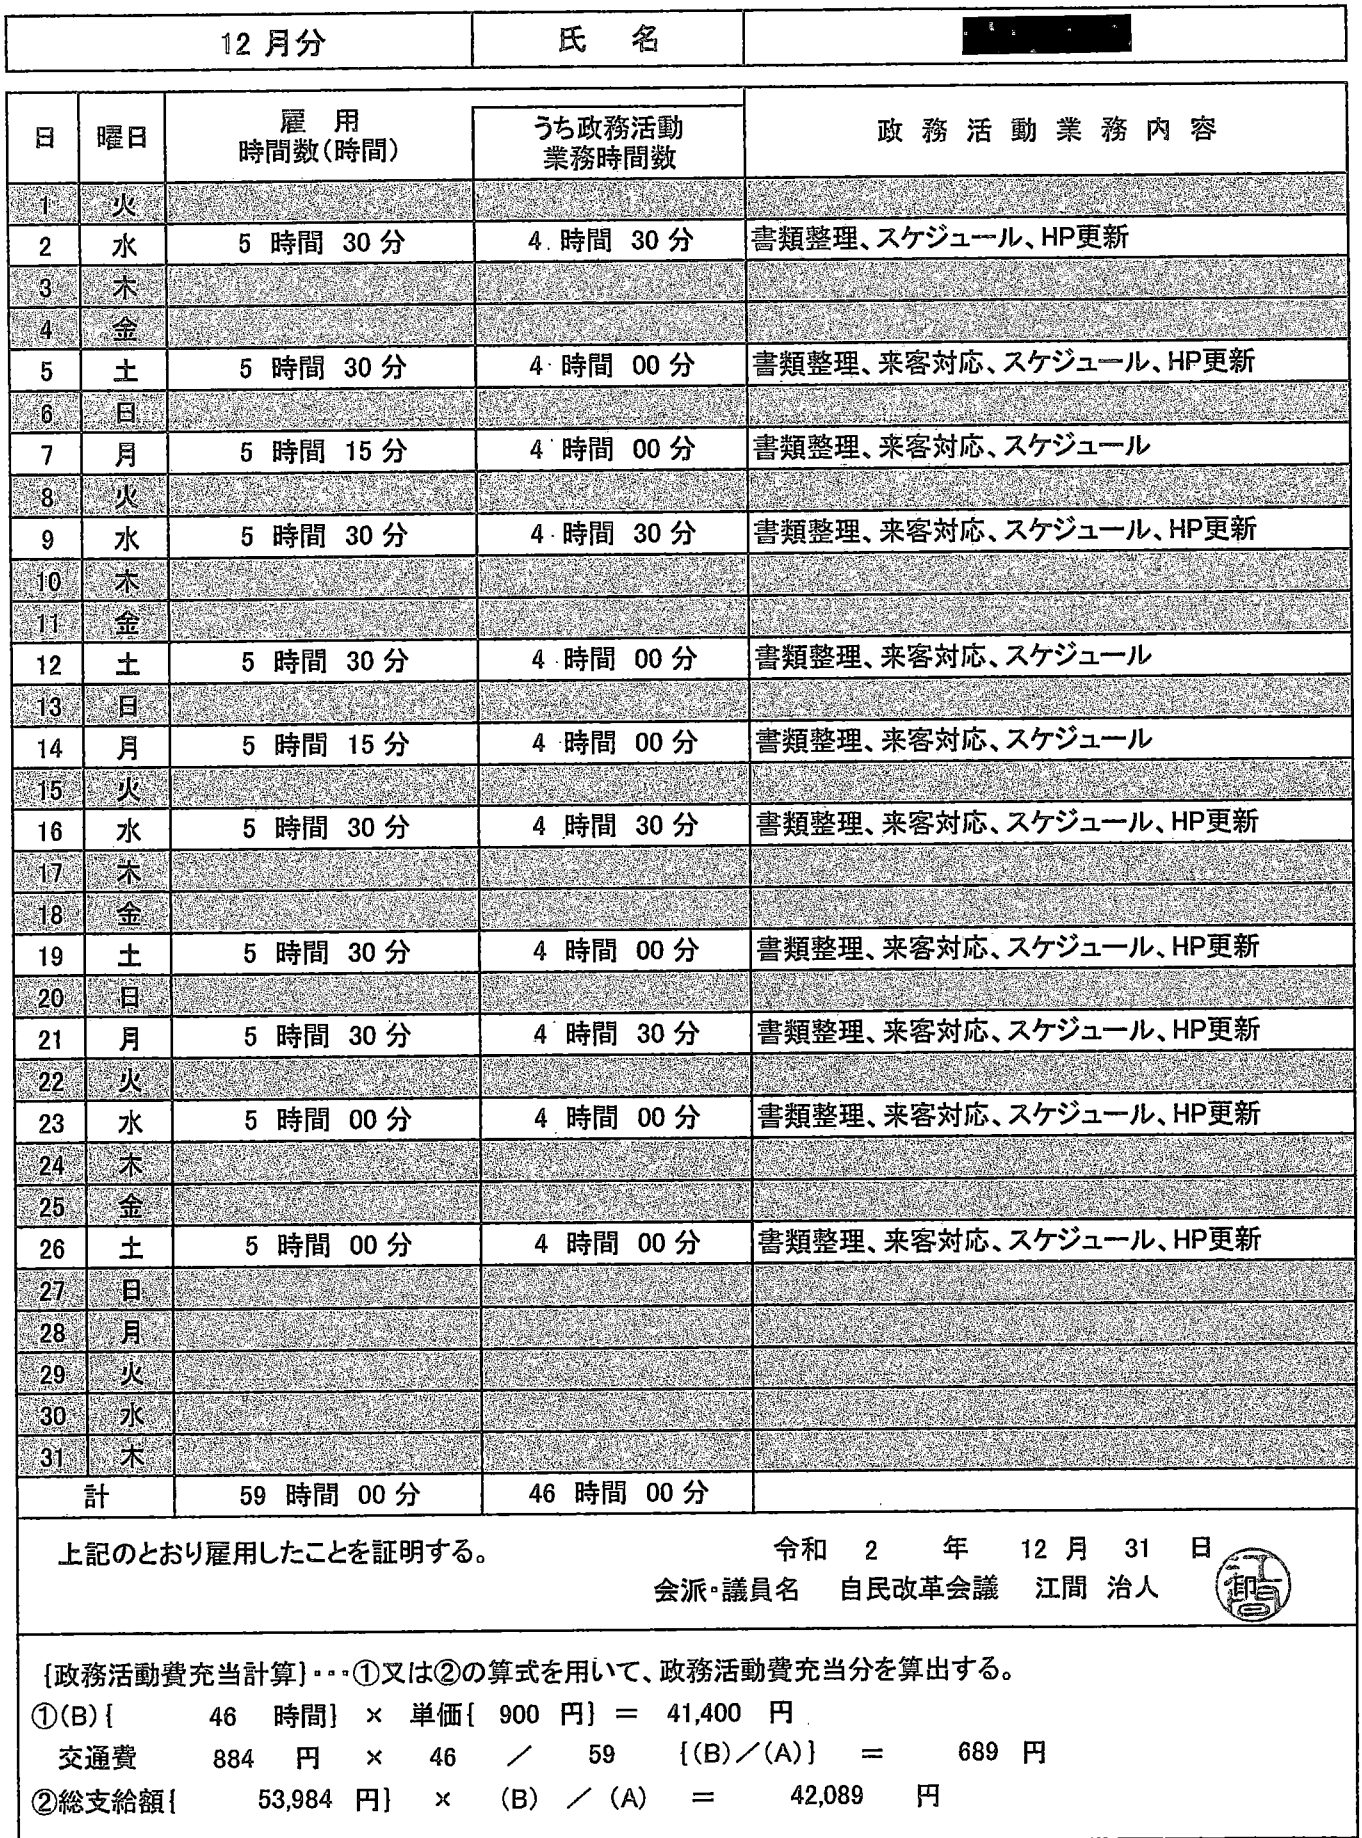 12 月分 氏 名
日 曜日 雇 用 時間数(時間) うち政務活動 業務時間数 政 務 活 動 業 務 内 容
1 火
2 水 5 時間 30 分 4 時間 30 分 書類整理、スケジュール、HP更新
3 木
4 金
5 土 5 時間 30 分 4 時間 00 分 書類整理、来客対応、スケジュール、HP更新
6 日
7 月 5 時間 15 分 4 時間 00 分 書類整理、来客対応、スケジュール
8 火
9 水 5 時間 30 分 4 時間 30 分 書類整理、来客対応、スケジュール、HP更新
10 木
11 金
12 土 5 時間 30 分 4 時間 00 分 書類整理、来客対応、スケジュール
13 日
14 月 5 時間 15 分 4 時間 00 分 書類整理、来客対応、スケジュール
15 火
16 水 5 時間 30 分 4 時間 30 分 書類整理、来客対応、スケジュール、HP更新
17 木
18 金
19 土 5 時間 30 分 4 時間 00 分 書類整理、来客対応、スケジュール、HP更新
20 日
21 月 5 時間 30 分 4 時間 30 分 書類整理、来客対応、スケジュール、HP更新
22 火
23 水 5 時間 00 分 4 時間 00 分 書類整理、来客対応、スケジュール、HP更新
24 木
25 金
26 土 5 時間 00 分 4 時間 00 分 書類整理、来客対応、スケジュール、HP更新
27 日
28 月
29 火
30 水
31 木
計 59 時間 00 分 46 時間 00 分
上記のとおり雇用したことを証明する。 令和 2 年 12 月 31 日
会派・議員名 自民改革会議 江間 治人
{政務活動費充当計算}・・・①又は②の算式を用いて、政務活動費充当分を算出する。
①(B){ 46 時間} × 単価{ 900 円} = 41,400 円
交通費 884 円 × 46 / 59 {(B)/(A)} = 689 円
②総支給額{ 53,984 円} × (B) / (A) = 42,089 円